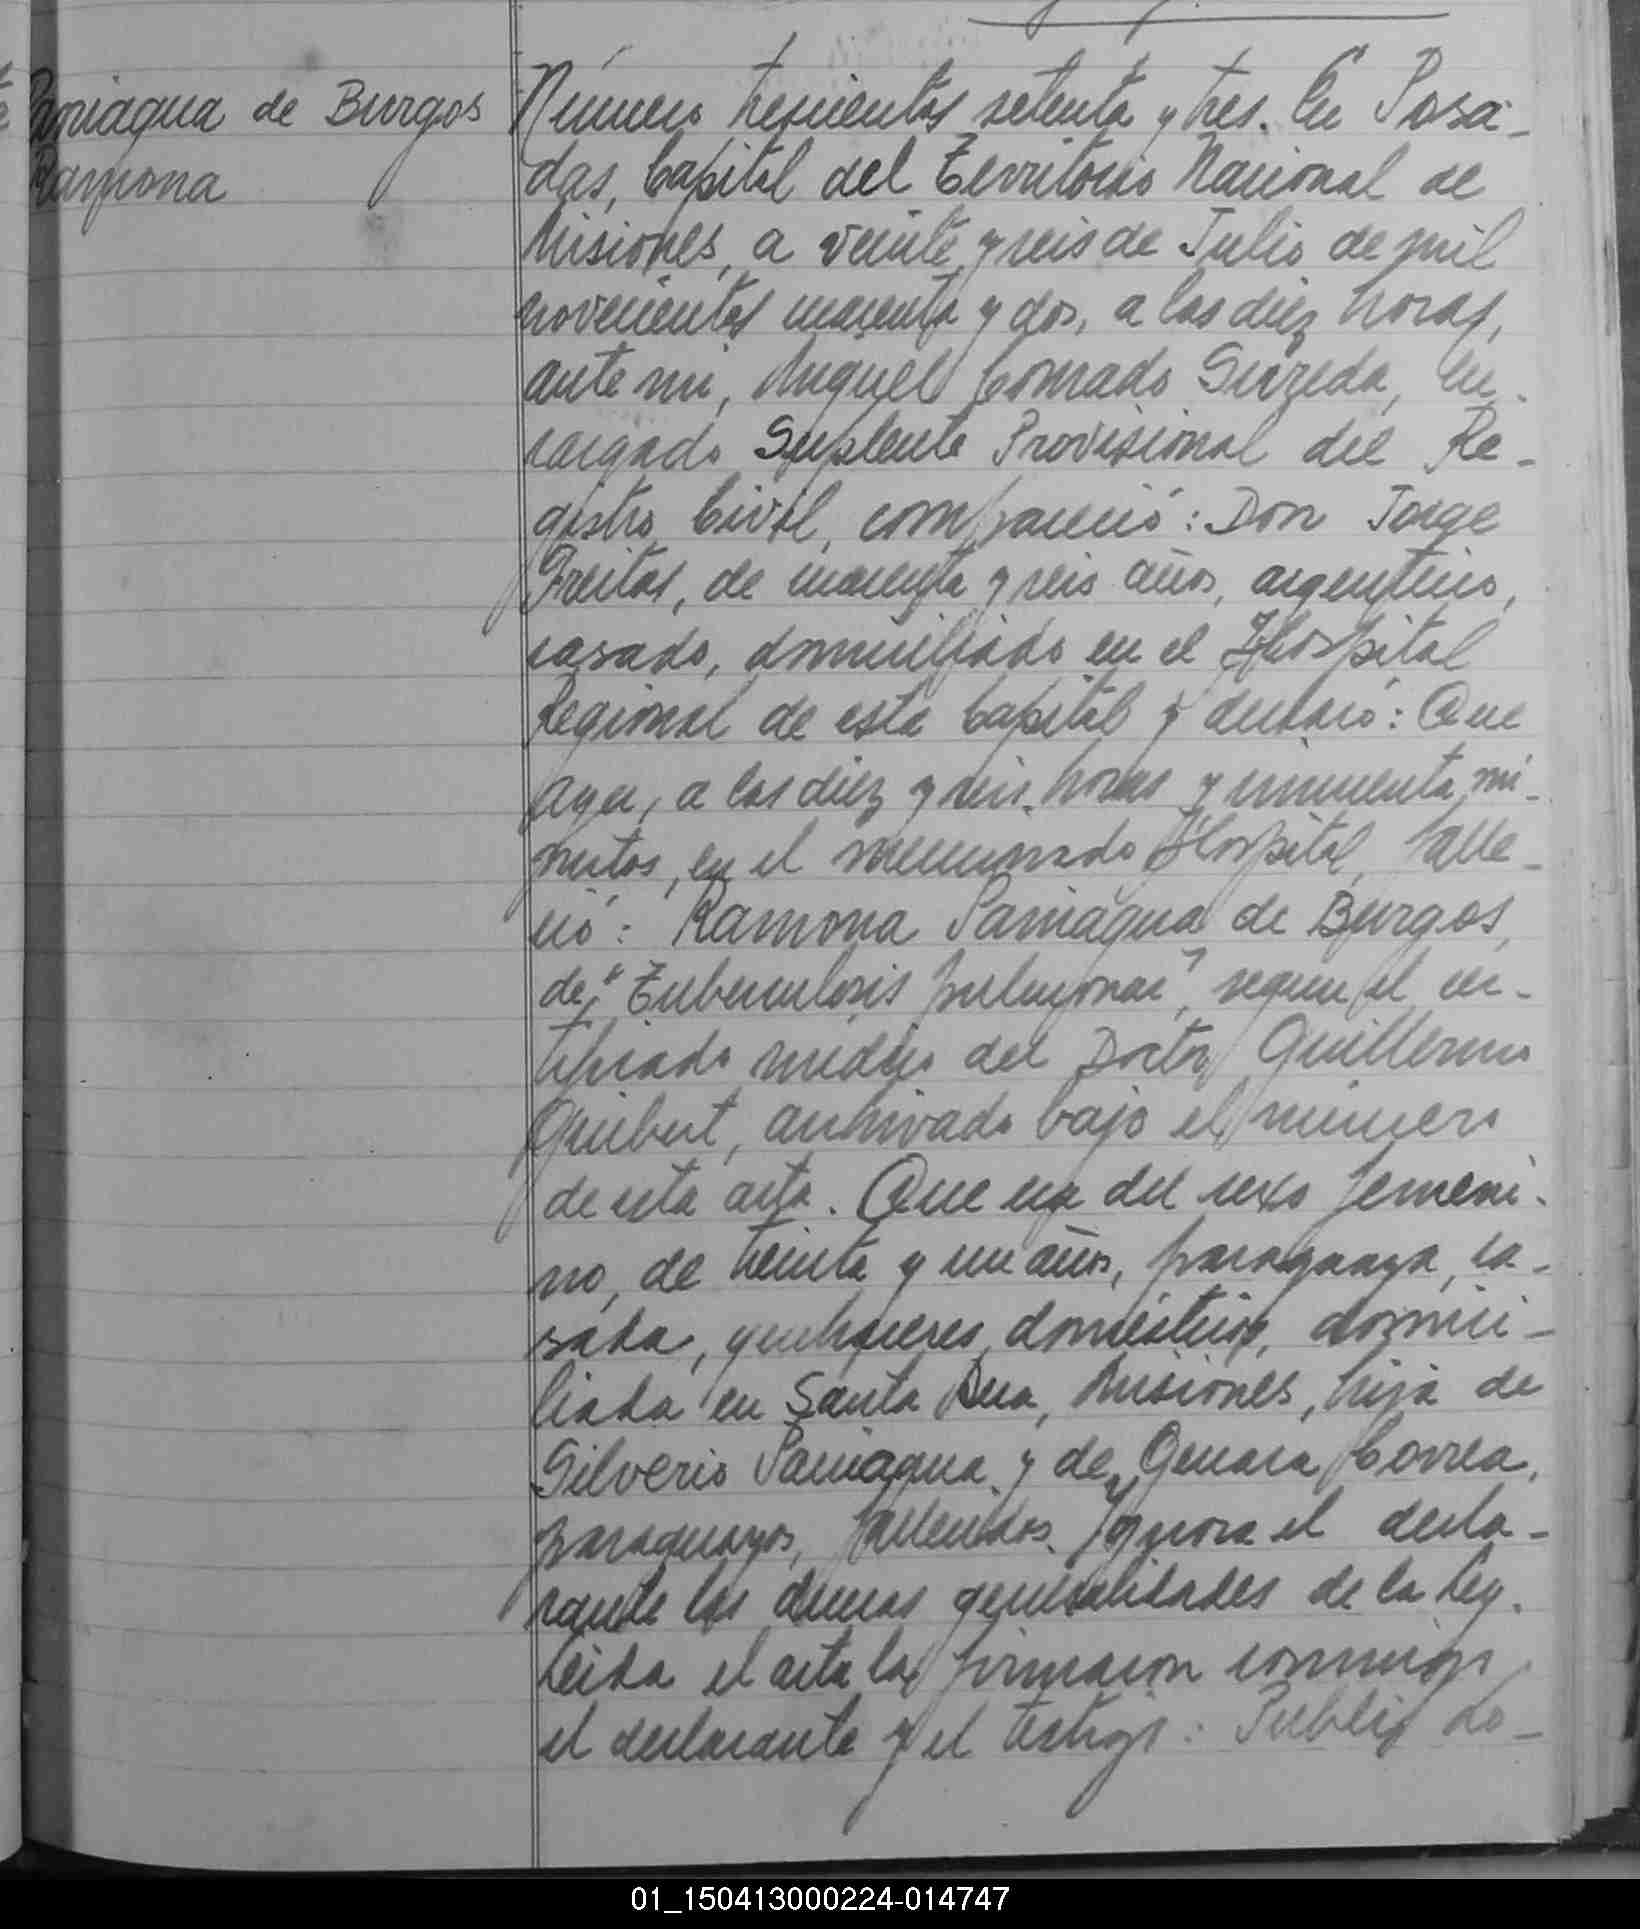 Paniagua de Burgos
Ramona
Número trescientos setenta y tres. En Posa-
das, Capital del Territorio Nacional de
Misiones, a veinte y seis de Julio de mil
novecientos cuarenta y dos, a las diez horas,
ante mi, Miguel Conrado Sureda, En-
cargado Suplente Provisional del Re-
gistro Civil, compareció: Don Jorge
Freitas, de cuarenta y seis años, argentino,
casado, domiciliado en el Hospital
Regional de esta Capital y declaró: Que
ayer, a las diez y seis horas y cincuenta mi-
nutos, en el mencionado Hospital, falle-
ció: Ramona Paniagua de Burgos,
de "Tuberculosis pulmonar", segun el cer-
tificado médico del Doctor Guillermo
Guibert, archivado bajo el número
de esta acta. Que era del sexo femeni-
no, de treinta y un años, paraguaya, ca-
sada, quehaceres domésticos, domici-
liada en Santa Ana, Misiones, hija de
Silverio Paniagua y de Genara Correa,
paraguayos, fallecidos. Ignora el decla-
rante las demas generalidades de la Ley.
Leida el acta la firmaron conmigo
el declarante y el testigo: Publio Lo-
01_150413000224-014747